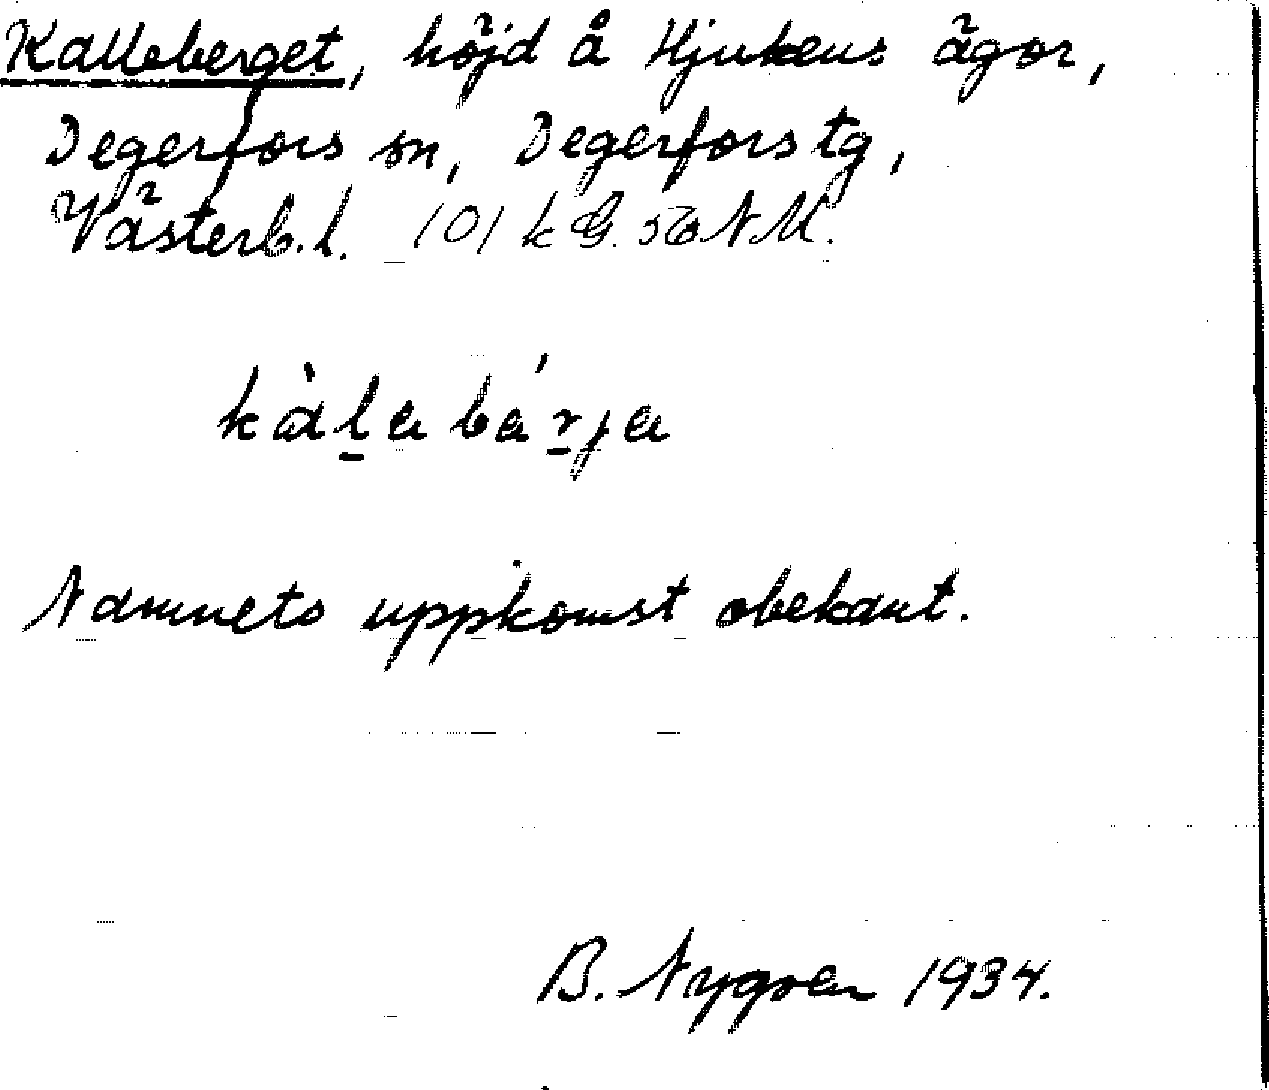 Kalleberget, höjd å Hjukens ägor,
Degerfors sn, Degerfors tg,
Västerb. l.
kàla bárja
Namnets uppkomst obekant.
B. Nygren 1934.